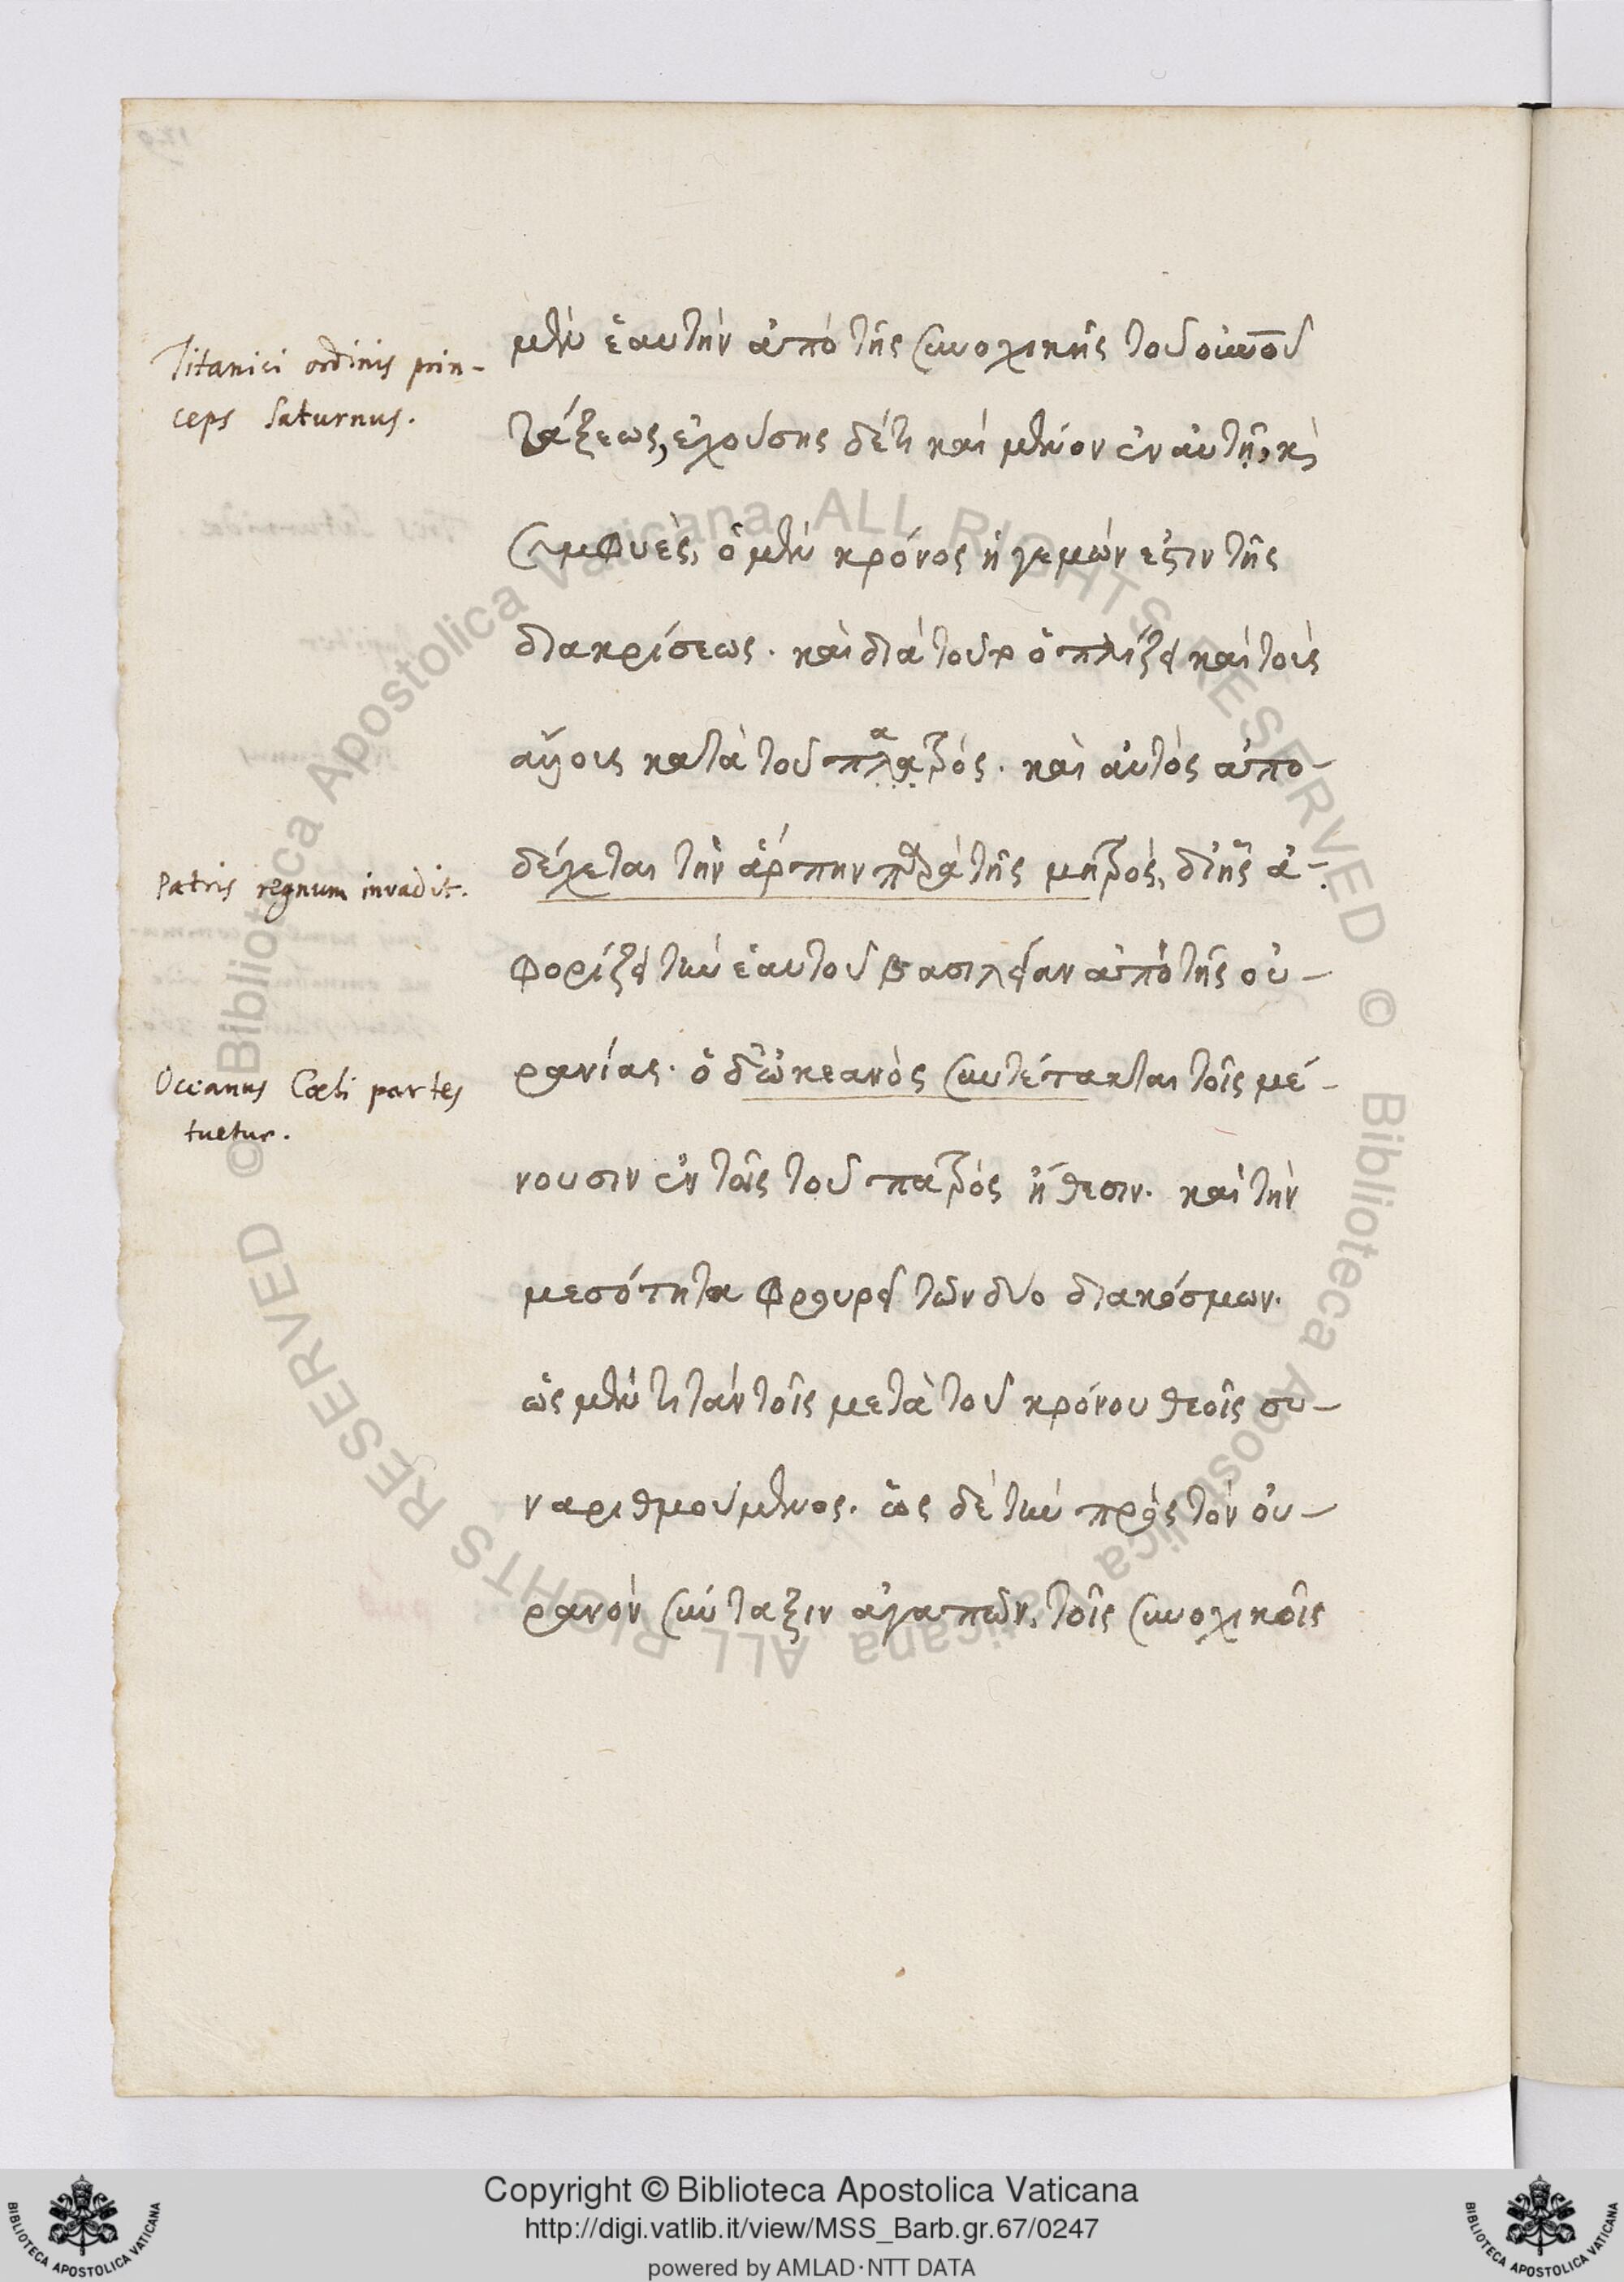 Titanici ordinis prin-
ceps Saturnus.
μὲν ἑαυτὴν ἀπὸ τῆς συνοχικῆς τοῦ οὐνοῦ
τάξεως, ἐχούσης δέ τι καὶ μένον ἐν αὐτῇ, κὶ
συμφυὲς, ὁ μὲν κρόνος ἡγεμών ἐστιν τῆς
διακρίσεως. καὶ διὰ τοῦτο ὁπλίζει καὶ τοὺς
ἄλλους κατὰ τοῦ πατρός. καὶ αὐτὸς ἀπο-
Patris regnum invadit.
δέχεται τὴν ἅρπην παρὰ τῆς μητρὸς, δι' ἧς ἀ-
φορίζει τὴν ἑαυτοῦ βασιλείαν ἀπὸ τῆς οὐ-
Oceanus Cœli partes
tuetur.
ρανίας. ὁ δ' ὠκεανὸς συντέτακται τοῖς μέ-
νουσιν ἐν τοῖς τοῦ πατρός ἤθεσιν. καὶ τὴν
μεσότητα φρουρεῖ τῶν δύο διακόσμων.
ὡς μὲν τιτὰν τοῖς μετὰ τοῦ κρόνου θεοῖς συ-
ναριθμούμενος. ὡς δὲ τὴν πρὸς τὸν οὐ-
ρανὸν σύνταξιν ἀγαπῶν, τοῖς συνοχικοῖς
© Biblioteca Apostolica Vaticana ALL RIGHTS RESERVED © Biblioteca Apostolica Vaticana ALL RIGHTS RESERVED
BIBLIOTECA APOSTOLICA VATICANA
Copyright © Biblioteca Apostolica Vaticana
http://digi.vatlib.it/view/MSS_Barb.gr.67/0247
powered by AMLAD·NTT DATA
BIBLIOTECA APOSTOLICA VATICANA